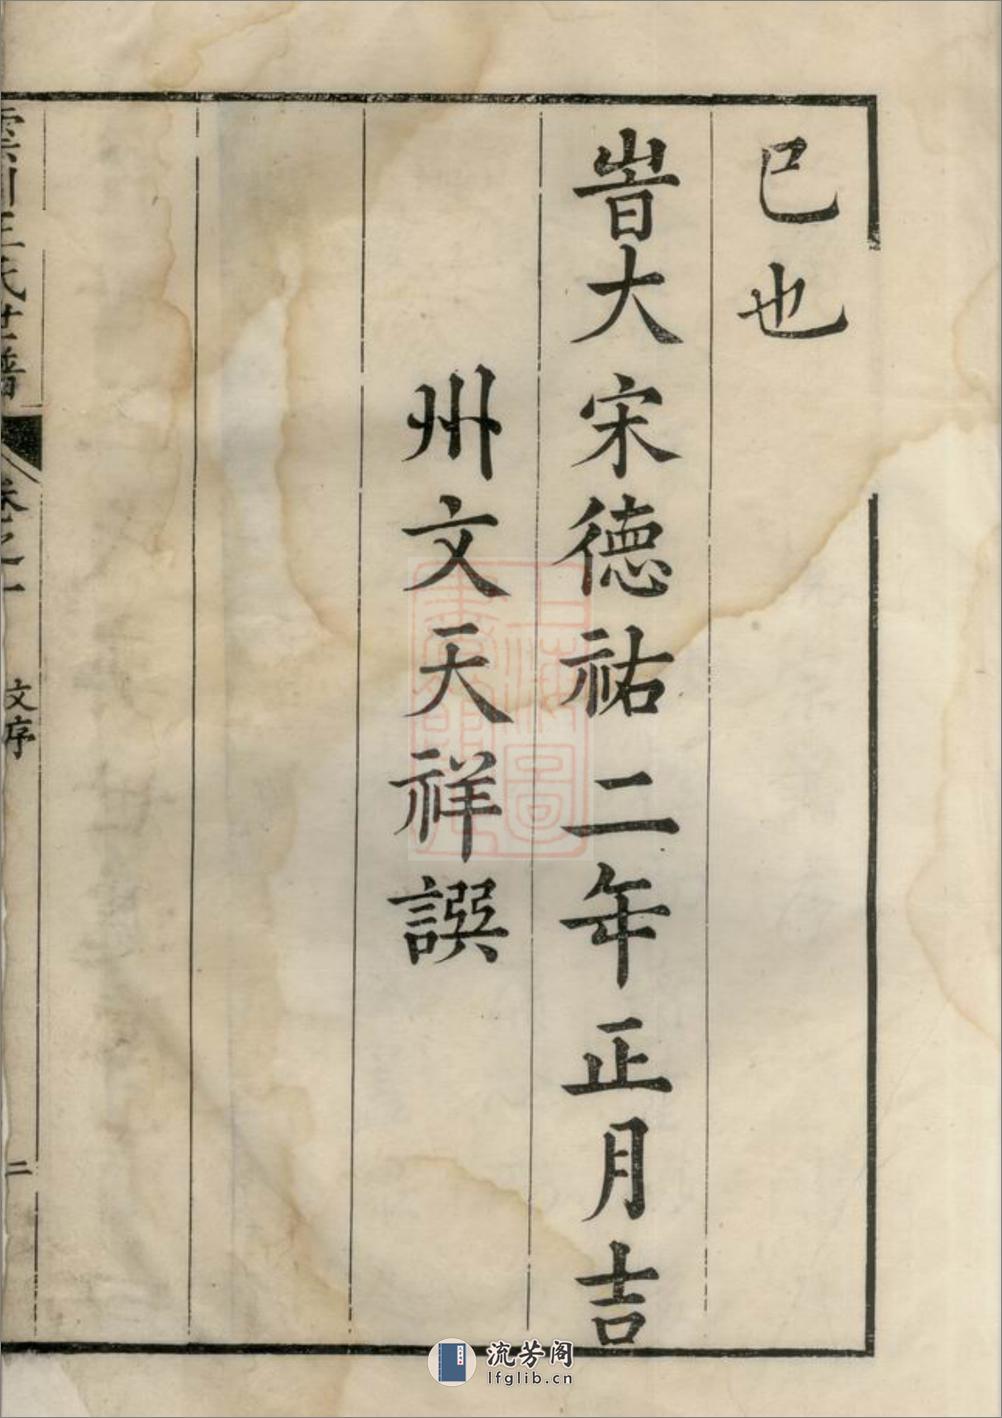 已也
旹大宋德祐二年正月吉
州文天祥譔
王氏世譜
卷之一
文序
二
流芳阁
lfglib.cn